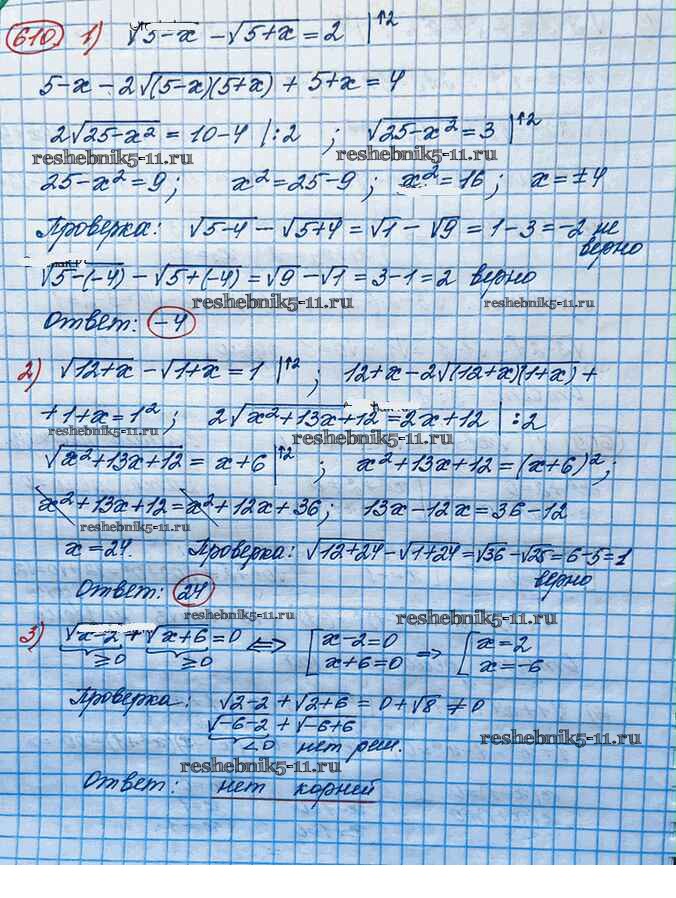 610. 1) √5-x - √5+x = 2 |↑2
5-x-2√(5-x)(5+x) + 5+x = 4
2√25-x² = 10-4 |:2 ; √25-x² = 3 |↑2
reshebnik5-11.ru reshebnik5-11.ru
25-x² = 9; x² = 25-9; x² = 16; x = ±4
Проверка: √5-4 - √5+4 = √1 - √9 = 1-3 = -2 не
верно
√5-(-4) - √5+(-4) = √9 - √1 = 3-1 = 2 верно
reshebnik5-11.ru reshebnik5-11.ru
Ответ: -4
2) √12+x - √1+x = 1 |↑2 ; 12+x-2√(12+x)(1+x) +
+1+x = 1² ; 2√x²+13x+12 = 2x+12 |:2
reshebnik5-11.ru reshebnik5-11.ru
√x²+13x+12 = x+6 |↑2 ; x²+13x+12 = (x+6)²;
x²+13x+12 = x²+12x+36; 13x-12x = 36-12
reshebnik5-11.ru
x = 24. Проверка: √12+24 - √1+24 = √36 - √25 = 6-5 = 1
верно
Ответ: 24
reshebnik5-11.ru reshebnik5-11.ru
3) √x-2 + √x+6 = 0 ⟺ [ x-2=0 ⇒ [ x=2
≥0 ≥0 x+6=0 x=-6
Проверка: √2-2 + √2+6 = 0+√8 ≠ 0
√-6-2 + √-6+6
<0 нет реш.
reshebnik5-11.ru
reshebnik5-11.ru
Ответ: нет корней